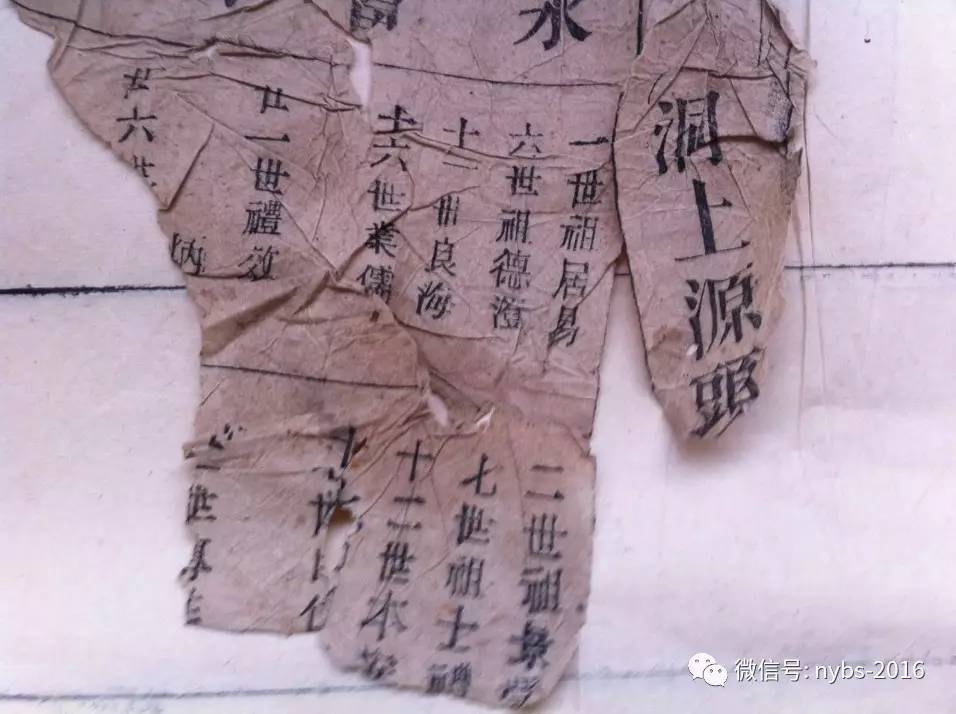 洞上源頭
永
富
一世祖居易
六世祖德澄
十一世良海
十六世業儒
廿一世禮效
廿六世
炳
二世祖景
七世祖士
十二世本
世
世
微信号: nybs-2016